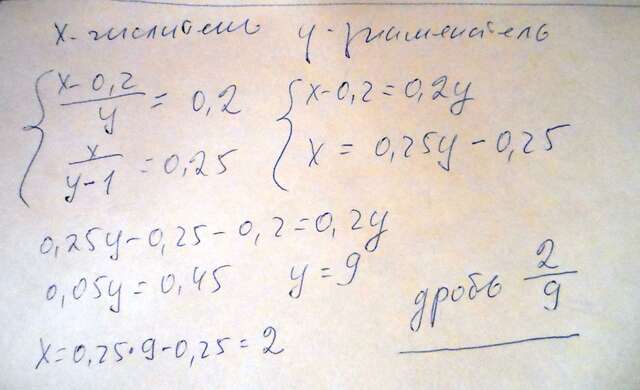 x - числитель y - знаменатель
{ (x-0,2)/y = 0,2 { x-0,2=0,2y
x/(y-1) = 0,25 x = 0,25y-0,25
0,25y-0,25-0,2=0,2y
0,05y=0,45 y=9
дробь 2/9
x=0,25·9-0,25=2